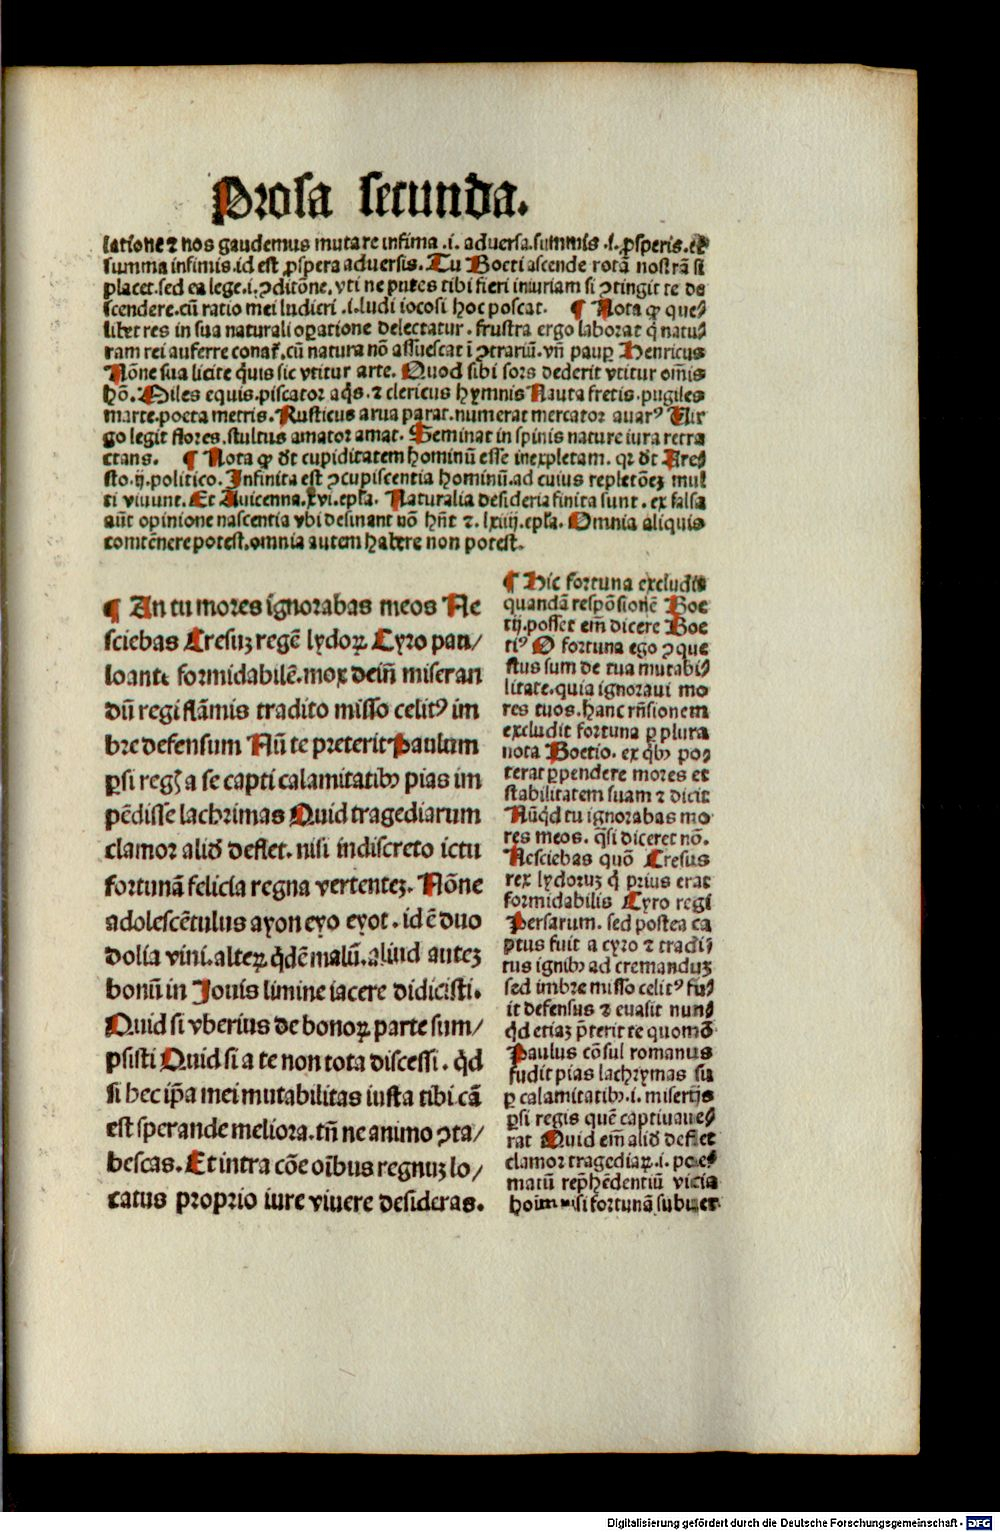 Prosa secunda.
latione ⁊ nos gaudemus mutare infima .i. aduersa.summis .i. ꝓsperis.et
summa infimis.id est ꝓspera aduersis. Tu Boeti ascende rotā nostrā si
placet.sed ea lege.i.ꝯditōne.vti ne putes tibi fieri iniuriam si ꝯtingit te de
scendere.cū ratio mei ludicri .i.ludi iocosi hoc poscat. ¶ Nota ꝙ que/
libet res in sua naturali oꝑatione delectatur. frustra ergo laborat q̇ natu/
ram rei auferre conat᷑.cū natura nō assuescat ī ꝯtrariū.vn̄ pauꝑ Henricus
Nōne sua licite q̇uis sic vtitur arte. Quod sibi sors dederit vtitur om̄is
hō. Miles equis.piscator aq̇s.⁊ clericus hymnis Nauta fretis.pugiles
marte.poeta metris. Rusticus arua parat.numerat mercator auarꝰ Vir
go legit flores.stultus amator amat. Seminat in spinis nature iura retra
ctans. ¶ Nota ꝙ dt̄ cupiditatem hominū esse inexpletam. qꝛ dt̄ Are/
sto.ij.politico. Infinita est ꝯcupiscentia hominū.ad cuius repletōeꝫ mul
ti viuunt. Et Auicenna.xvi.epl̄a. Naturalia desideria finita sunt. ex falsa
aūt opinione nascentia vbi desinant nō hn̄t ⁊. lxiiij.epl̄a. Omnia aliquis
contēnere potest.omnia autem habere non potest.
¶ An tu mores ignorabas meos Ne
sciebas Cresuꝫ regē lydoꝝ Cyro pau/
lo ante formidabilē.mox dein̄ miseran
dū regi flāmis tradito misso celitꝰ im
bre defensum Nū te preterit Paulum
ꝑsi regꝭ a se capti calamitatibꝫ pias im
pēdisse lachrimas Quid tragediarum
clamor aliđ deflet. nisi indiscreto ictu
fortunā felicia regna verteteꝫ. Nōne
adolescētulus ayon eyo eyot. id ē duo
dolia vini.alteꝝ q̇dē malū.aliud auteꝫ
bonū in Iouis limine iacere didicisti.
Quid si vberius de bonoꝝ parte sum/
psisti Quid si a te non tota discessi. q̇d
si hec ip̄a mei mutabilitas iusta tibi cā
est sperande meliora.tn̄ ne animo ꝯta/
bescas. Et intra cōe oībus regnuꝫ lo/
catus proprio iure viuere desideras.
¶ Hic fortuna excludit
quandā respōsionē Boe
tij.posset em̄ dicere Boe
tiꝰ O fortuna ego ꝯque
stus sum de tua mutabi/
litate.quia ignoraui mo
res tuos.hanc rn̄sionem
excludit fortuna ꝑ plura
nota Boetio. ex q̇bꝫ po/
terat ꝑpendere mores et
stabilitatem suam ⁊ dicit
Nūq̇d tu ignorabas mo
res meos. q̇si diceret nō.
Nesciebas quō Cresus
rex lydoruꝫ q̇ prius erat
formidabilis Cyro regi
Persarum. sed postea ca
ptus fuit a cyro ⁊ tradi/
tus ignibꝫ ad cremanduꝫ
sed imbre misso celitꝰ fu/
it defensus ⁊ euasit nun/
q̇d etiaꝫ p̄terit te quomō
Paulus cōsul romanus
fudit pias lachrymas su
ꝑ calamitatibꝫ.i. miserijs
ꝑsi regis quē captiuaue/
rat Quid em̄ aliđ deflet
clamor tragediaꝝ.i. poe/
matū rep̄hēdentiū vicia
hoīm nisi fortunā subuer
Digitalisierung gefördert durch die Deutsche Forschungsgemeinschaft - DFG